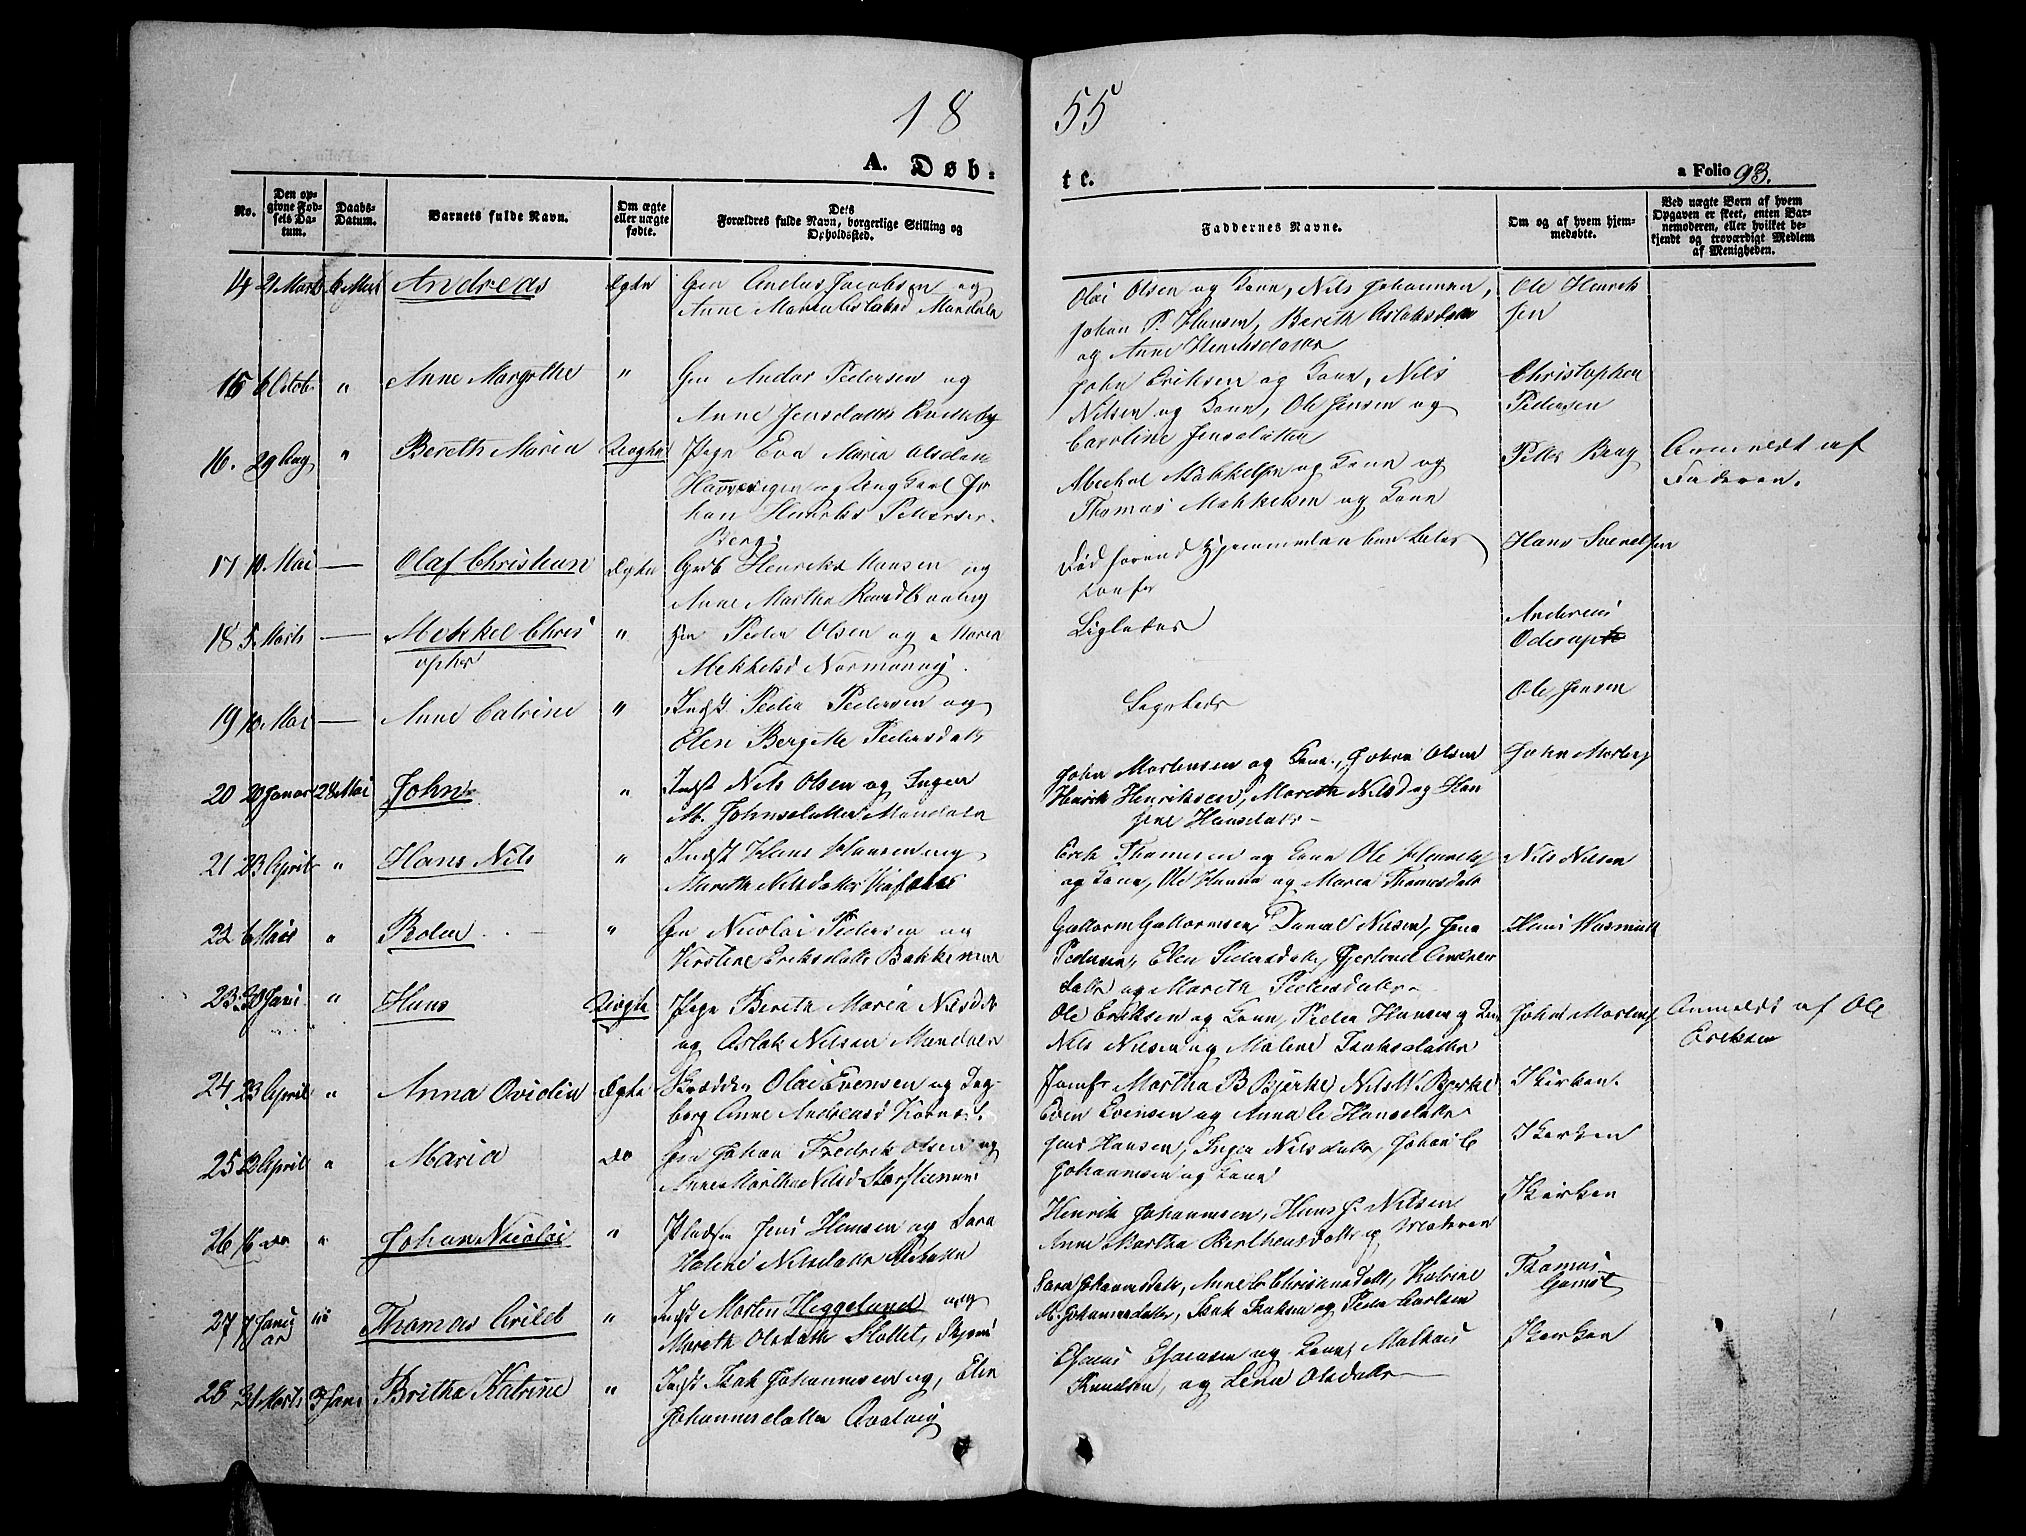 18 55
A. Døb-
te.
a Folio 93.
No.
Den op-
givne Fød-
sels Da-
tum.
Daabs-
Datum.
Barnets fulde Navn.
Om ægte
eller uægte
fødte.
Dets
Forældres fulde Navn, borgerlige Stilling og
Opholdssted.
Faddernes Navne.
Om og af hvem hjem-
medøbte.
Ved uægte Børn af hvem
Opgaven er skeet, enten Bar-
nemoderen, eller hvilket be-
kjendt og troværdigt Medlem
af Menigheden.
14 21 Marts Andreas Ægte Jacobsen og
Anne Maria Mandalen
Olai Olsen og Kone, Nils Johannesen,
Johan P. Hansen, Bereth Aslaksdatter
og Anne Henriksdatter
Ole Henrik
sen
15 6 Octob " Anne Margrethe " Gm Anders Pedersen og
Anne Jensdatter Kvæneby
John Eriksen og Kone, Nils
Nilsen og Kone, Ole Jensen og
Caroline Jensdatter
Christopher
Pedersen
16. 29 Aug " Bereth Maria Uægte Pige Eva Maria Olsdatter
og Ung Karl Jo
han Henrik Pettersen
Berg.
Michel Mikkelsen og Kone og
Thomas Mikkelsen og Kone
Petter Berg
Anmeldt af
Faderen.
17 10 Mai — Olaf Christian Ægte Henrik Hansen og
Anne Martha
Død forend Hjemmedaaben
Hans Svendsen
18 5 Marts — Mekkel Chris
opher " Gm Peder Olsen og Maren
Mekkelsd Normanvig.
Ligeledes
Andreas
19 10 Mai — Anne Catrine " Indst Peder Pedersen og
Elen Bergitte Pedersdatr
Ligeledes
Ole Jensen
20 20 Januar 28 Mai John " Indst Nils Olsen og Inger
M. Johnsdatter Mandalen
John Mortensen og Kone, Johan Olsen
Henrik Henriksen, Mareth Nilsd og Han
sine Hansdatr —
John Mortens
21 23 April " Hans Nils " Indst Hans Hansen og
Mareth Nilsdatter
Erik Thomesen og Kone Ole Henriks
og Kone, Ole Hansen og Maren Thomesdatr
Nils Nilsen
22 6 Mars " Bolen " Gm Nicolai Pedersen og
Kirstine Eriksdatter Bakkemoen
Guttorm Guttormsen, Daniel Nilsen, Jens
Pedersen, Elen Pedersdatr, Gjertrud Anders
datr og Mareth Pedersdatter
Hans Wasmuth
23. 20 Jani " Hans Uægte Pige Bereth Maria Nilsdr
og Aslak Nilsen Mandalen
Ole Eriksen og Kone, Peder Hansen og Kone
Nils Nilsen og Malene Isaksdatter
John Mortens
Anmeldt af Ole
Eriksen
24. 23 April " Anna Ovidia Ægte Skrædder Olai Evensen og Dag
borg Anne Andreasd Kornes
Jomfr Martha B Bjerke Nils W. Bjerke
Even Evensen og Anna C Hansdatter
I Kirken.
25 2 April " Maria Do Gm Johan Fredrik Olsen og
Anne Martha Nilsd
Jens Hansen, Inger Nilsdatr, Johan C
Johannesen og Kone
I Kirken
26 16 Do " Johan Nicolai " Pladsm Jens Hansen og Sara
Helene Nilsdatter
Henrik Johannesen, Hans J. Nilsen
Anne Martha Bertheusdatter og Moderen
I Kirken
27 7 Janu
ar " Thomas " Indst Morten Heggelund og
Mareth Olsdatter Slottet, Skjerv
Sara Johannesdatr, Anne C Christensdatr, Katrine
M. Johannesdatter, Isak Isaksen og Peder Carlsen
Thomas
28 31 Marts Britha Katrine " Indst Isak Johannesen og Elen
Johannesdatter
Esaias Esaiasen og Kone, Mathias
Knudsen, og Lena Olsdatter —
I Kirken